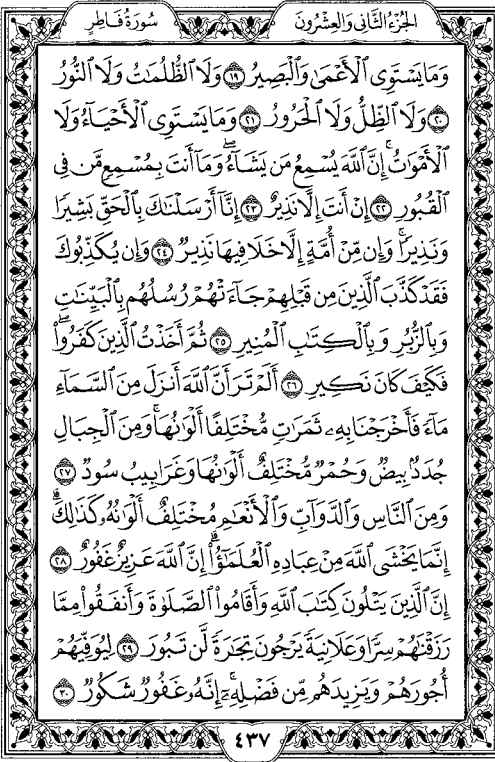 الجزء الثاني والعشرون
سورة فاطر
وَمَا يَسْتَوِى ٱلْأَعْمَىٰ وَٱلْبَصِيرُ ١٩ وَلَا ٱلظُّلُمَٰتُ وَلَا ٱلنُّورُ
٢٠ وَلَا ٱلظِّلُّ وَلَا ٱلْحَرُورُ ٢١ وَمَا يَسْتَوِى ٱلْأَحْيَآءُ وَلَا
ٱلْأَمْوَٰتُ ۚ إِنَّ ٱللَّهَ يُسْمِعُ مَن يَشَآءُ ۖ وَمَآ أَنتَ بِمُسْمِعٍ مَّن فِى
ٱلْقُبُورِ ٢٢ إِنْ أَنتَ إِلَّا نَذِيرٌ ٢٣ إِنَّآ أَرْسَلْنَٰكَ بِٱلْحَقِّ بَشِيرًا
وَنَذِيرًا ۚ وَإِن مِّنْ أُمَّةٍ إِلَّا خَلَا فِيهَا نَذِيرٌ ٢٤ وَإِن يُكَذِّبُوكَ
فَقَدْ كَذَّبَ ٱلَّذِينَ مِن قَبْلِهِمْ جَآءَتْهُمْ رُسُلُهُم بِٱلْبَيِّنَٰتِ
وَبِٱلزُّبُرِ وَبِٱلْكِتَٰبِ ٱلْمُنِيرِ ٢٥ ثُمَّ أَخَذْتُ ٱلَّذِينَ كَفَرُوا۟ ۖ
فَكَيْفَ كَانَ نَكِيرِ ٢٦ أَلَمْ تَرَ أَنَّ ٱللَّهَ أَنزَلَ مِنَ ٱلسَّمَآءِ
مَآءً فَأَخْرَجْنَا بِهِۦ ثَمَرَٰتٍ مُّخْتَلِفًا أَلْوَٰنُهَا ۚ وَمِنَ ٱلْجِبَالِ
جُدَدٌۢ بِيضٌ وَحُمْرٌ مُّخْتَلِفٌ أَلْوَٰنُهَا وَغَرَابِيبُ سُودٌ ٢٧
وَمِنَ ٱلنَّاسِ وَٱلدَّوَآبِّ وَٱلْأَنْعَٰمِ مُخْتَلِفٌ أَلْوَٰنُهُۥ كَذَٰلِكَ ۗ
إِنَّمَا يَخْشَى ٱللَّهَ مِنْ عِبَادِهِ ٱلْعُلَمَٰٓؤُا۟ ۗ إِنَّ ٱللَّهَ عَزِيزٌ غَفُورٌ ٢٨
إِنَّ ٱلَّذِينَ يَتْلُونَ كِتَٰبَ ٱللَّهِ وَأَقَامُوا۟ ٱلصَّلَوٰةَ وَأَنفَقُوا۟ مِمَّا
رَزَقْنَٰهُمْ سِرًّا وَعَلَانِيَةً يَرْجُونَ تِجَٰرَةً لَّن تَبُورَ ٢٩ لِيُوَفِّيَهُمْ
أُجُورَهُمْ وَيَزِيدَهُم مِّن فَضْلِهِۦٓ ۚ إِنَّهُۥ غَفُورٌ شَكُورٌ ٣٠
٤٣٧